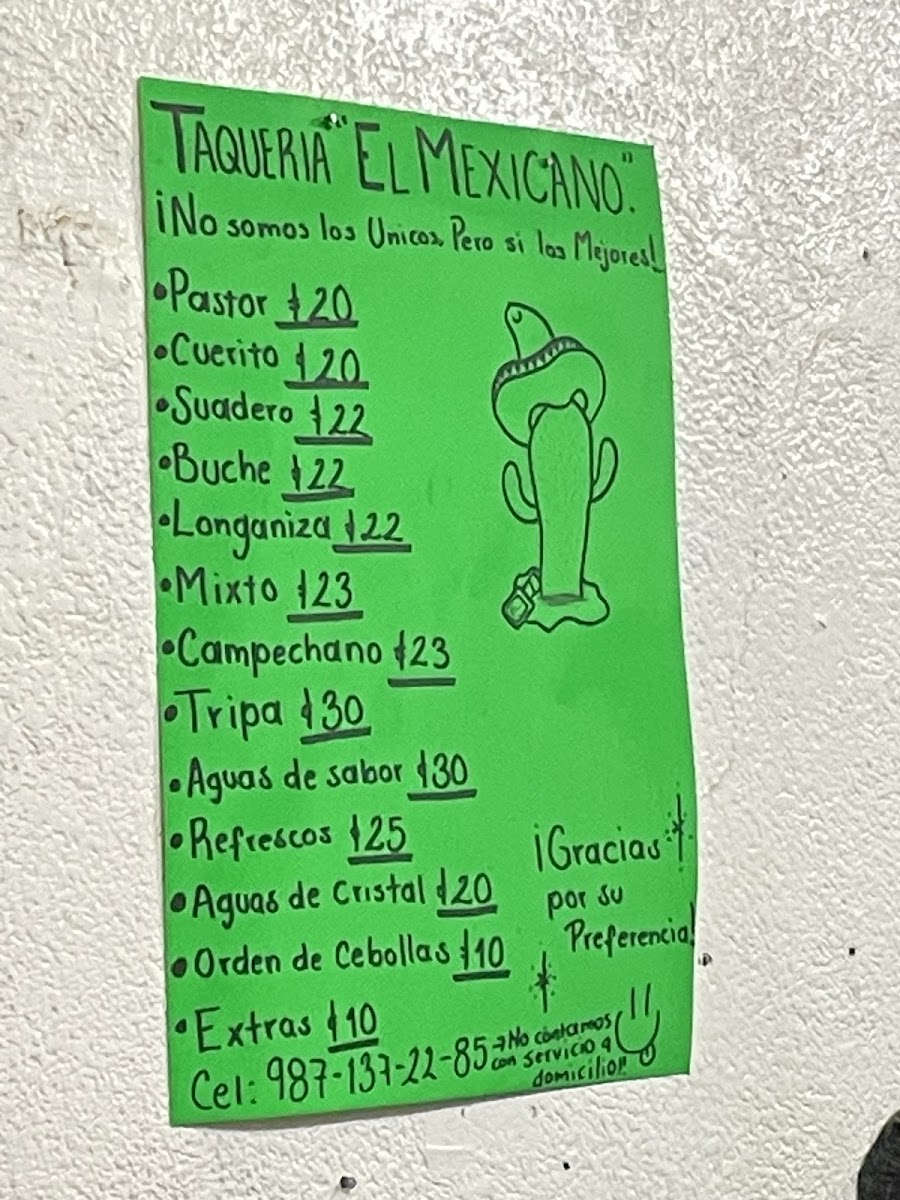 TAQUERIA "EL MEXICANO".
¡No somos los Unicos, Pero si los Mejores!
•Pastor $20
•Cuerito $20
•Suadero $22
•Buche $22
•Longaniza $22
•Mixto $23
•Campechano $23
•Tripa $30
•Aguas de sabor $30
•Refrescos $25
•Aguas de Cristal $20
•Orden de Cebollas $10
•Extras $10
¡Gracias
por su
Preferencia!
Cel: 987-137-22-85
→No contamos
con servicio a
domicilio!!